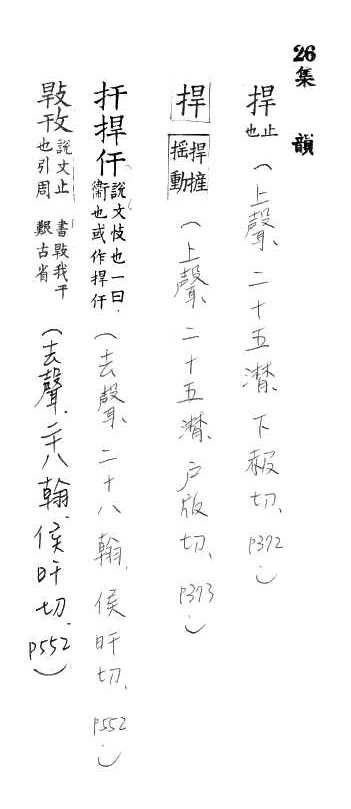 26 集韻
捍止也(上聲、二十五潸、下赧切、P372)
捍捍摌搖動(上聲、二十五潸、戶版切、P373)
扞捍仠說文忮也一曰.衞也或作捍仠(去聲、二十八翰、侯旰切、P552)
敤攼說文止也引周書敤我干艱古省(去聲、二十八翰、侯旰切、P552)